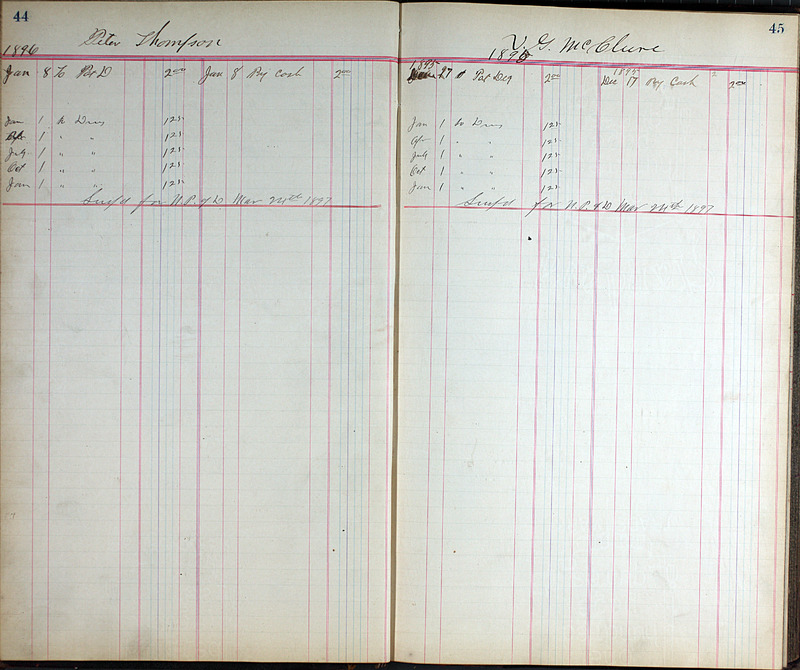 44
Peter Thompson
1896
Jan 8 To Per D 2 00 Jan 8 By Cash 2 00
Jan 1 to Dues 1 25
Apr 1 " " 1 25
July 1 " " 1 25
Oct 1 " " 1 25
Jan 1 " " 1 25
Susp'd for N.P. of D Mar 24th 1897
45
V. G. McClure
1896
1895 1895
27 Per Deg 2 00 Dec 17 By Cash 2 00
Jan 1 to Dues 1 25
Apr 1 " " 1 25
July 1 " " 1 25
Oct 1 " " 1 25
Jan 1 " " 1 25
Susp'd for N.P. of D Mar 24th 1897